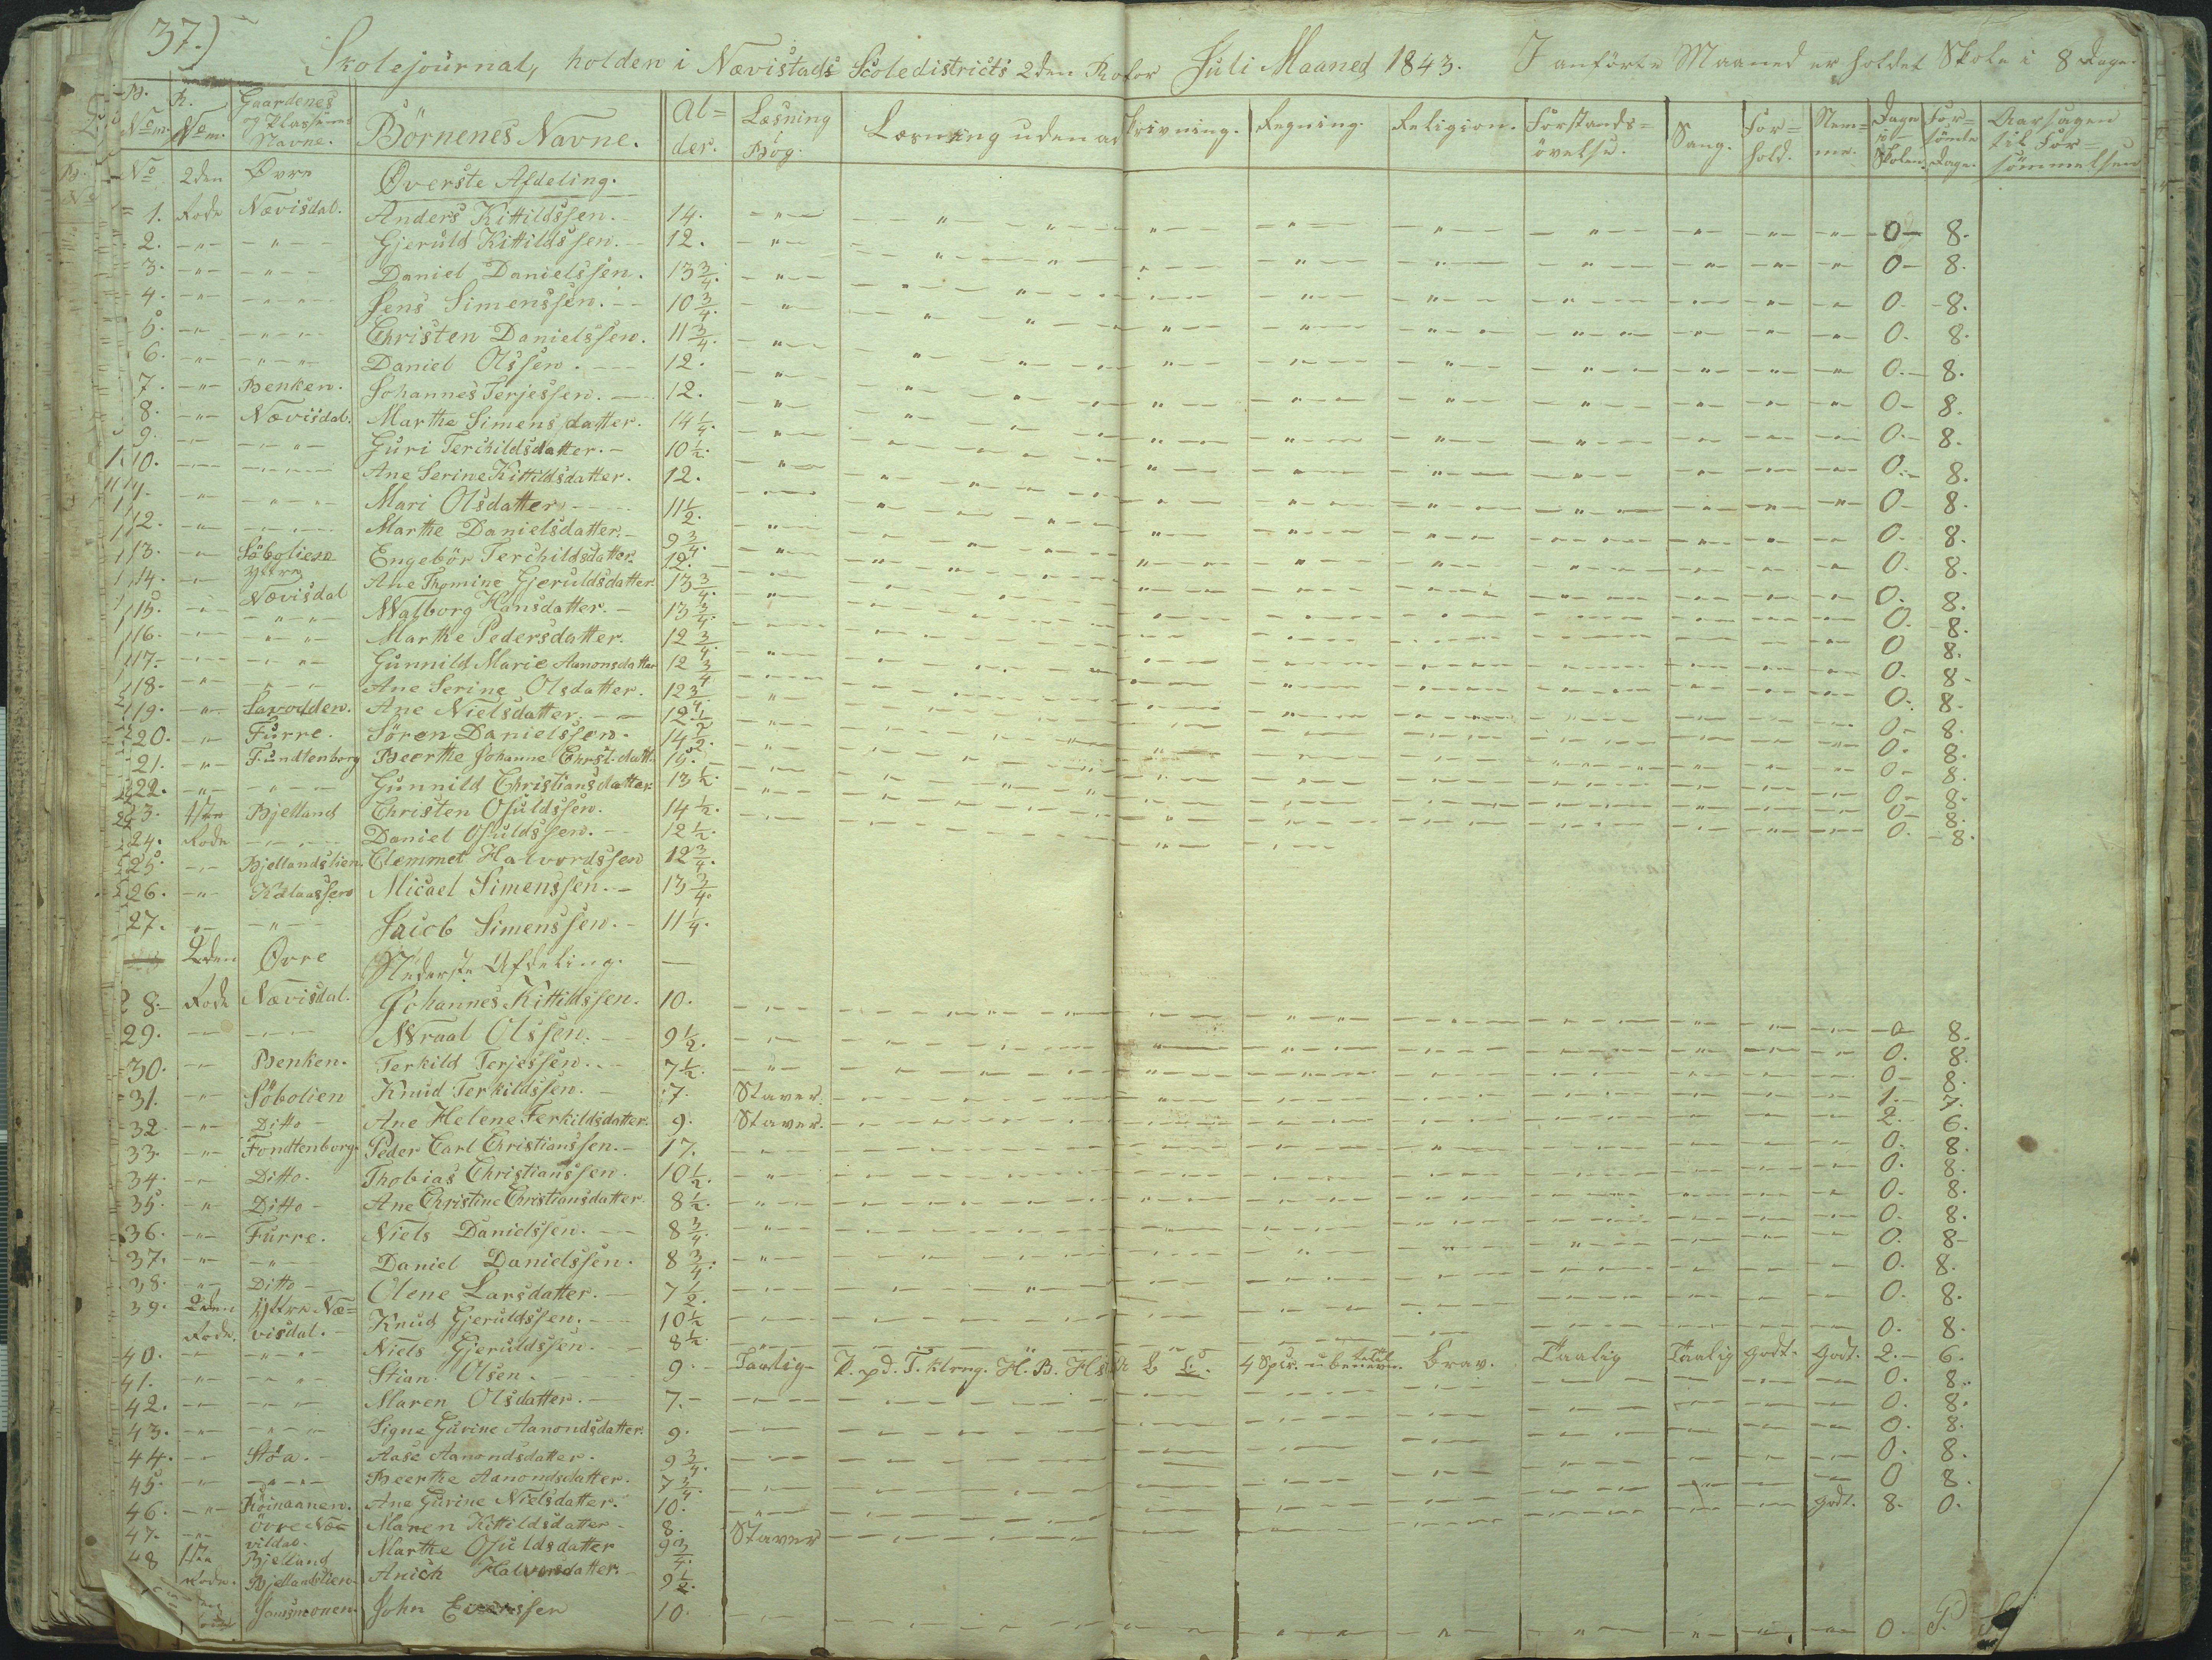 37.)
Skolejournal, holden i Nævistads Scoledistricts 2den Rode for Juli Maaned 1843. I anförte Maaned er holdet Skole i 8 Dage.
B. No m. R. No m. Gaardenes og Pladsenes Navne. Börnenes Navne. Al= der. Læsning Bog. Læsning uden ad Skrivning. Regning. Religion. Forstands= övelse. Sang. For= hold. Nem= me. Dage i Skolen. For= sömte Dage. Aarsagen til For= sömmelsen
No 2den Øvre Øverste Afdeling.
1. Rode Nævisdal. Anders Kittildssen. 14. 0 8.
2. Gjeruld Kittildssen. 12. 0 8.
3. Daniel Danielssen. 13 3/4. 0. 8.
4. Jens Simenssen. 10 3/4. 0. 8.
5. Christen Danielssen. 11 3/4. 0. 8.
6. Daniel Olssen. 12. 0. 8.
7. Benken. Johannes Terjessen. 12. 0. 8.
8. Nævisdal. Marthe Simensdatter. 14 1/4. 0. 8.
9. Guri Terchildsdatter. 10 1/2. 0. 8.
10. Ane Serine Kittildsdatter. 12. 0. 8.
11. Mari Olsdatter. 11 1/2. 0. 8.
12. Marthe Danielsdatter. 9 3/4. 0. 8.
13. Söbolien Engebör Terchildsdatter. 12. 0. 8.
14. Yttre Nævisdal Ane Thomine Gjeruldsdatter 13 3/4. 0. 8.
15. Walborg Hansdatter. 13 3/4. 0 8.
16. Marthe Pedersdatter. 12 3/4. 0. 8.
17. Gunnild Marie Aanonsdatter 12 3/4 0. 8.
18. Ane Serine Olsdatter. 12 3/4. 0. 8.
19. Ane Nielsdatter. 12 1/2 0. 8.
20. Furre. Sören Danielssen. 14 1/2. 0. 8.
21. Fundtenborg Beerthe Johanne Christ. datt. 15. 0. 8.
22. Gunnild Christiansdatter 13 1/2. 0. 8.
23. 1ste Bjelland Christen Osuldssen. 14 1/2. 0. 8.
24. Rode Daniel Osuldssen. 12 1/2.
25. Bjellandslien. Clemmet Halvordssen 12 3/4.
26. Micael Simenssen. 13 3/4.
27. Jacob Simenssen. 11 1/4.
2den Øvre Nederste Afdeling.
28. Rode Nævisdal. Johannes Kittildssen. 10. 0 8.
29. Wraal Olssen. 9 1/2. 0. 8.
30. Benken. Terkild Terjessen. 7 1/2. 0 8.
31. Söbolien Knud Terkildssen. 7. Staver. 1. 7.
32. Ditto Ane Helene Terkildsdatter. 9. Staver. 2. 6.
33. Fondtenborg. Peder Carl Christianssen. 17. 0. 8.
34. Ditto. Thobias Christianssen. 10 1/2. 0. 8.
35. Ditto Ane Christine Christiansdatter. 8 1/2. 0. 8.
36. Furre. Niels Danielssen. 8 3/4. 0. 8.
37. Daniel Danielssen. 8 3/4. 0. 8.
38. Ditto Olene Larsdatter. 7 1/2. 0. 8.
39. 2den Yttre Næ= Knud Gjeruldssen. 10 1/2 0. 8.
Rode. visdal.
40. Niels Gjeruldssen. 8 1/2. 0. 8.
41. Stian Olsen. 9. Taalig 4 Spis. Brav. Taalig Taalig godt. godt. 2. 6.
42. Maren Olsdatter. 7. 0. 8.
43. Signe Gurine Aanondsdatter. 9. 0. 8.
44. Stöa. Aase Aanondsdatter. 9 3/4. 0. 8.
45. Beerthe Aanondsdatter. 7 3/4. 0. 8.
46. Ane Gurine Nielsdatter. 10. 0 8.
47. Övre Næ= visdal. Maren Kittildsdatter 8. Staver godt. 8. 0.
48 1ste Bjelland Marthe Osuldsdatter 9 3/4.
Rode. Bjellandslien. Anich Halvorsdatter. 9 1/2.
John Evenssen 10. 0.